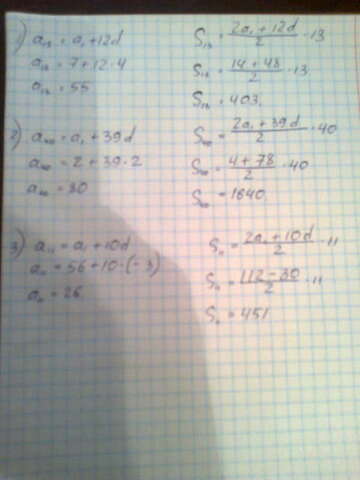 1) a₁₃ = a₁ + 12d
a₁₃ = 7 + 12 · 4
a₁₃ = 55
S₁₃ = (2a₁ + 12d)/2 · 13
S₁₃ = (14 + 48)/2 · 13
S₁₃ = 403.
2) a₄₀ = a₁ + 39d
a₄₀ = 2 + 39 · 2
a₄₀ = 80
S₄₀ = (2a₁ + 39d)/2 · 40
S₄₀ = (4 + 78)/2 · 40
S₄₀ = 1640.
3) a₁₁ = a₁ + 10d
a₁₁ = 56 + 10 · (-3)
a₁₁ = 26
S₁₁ = (2a₁ + 10d)/2 · 11
S₁₁ = (112 - 30)/2 · 11
S₁₁ = 451